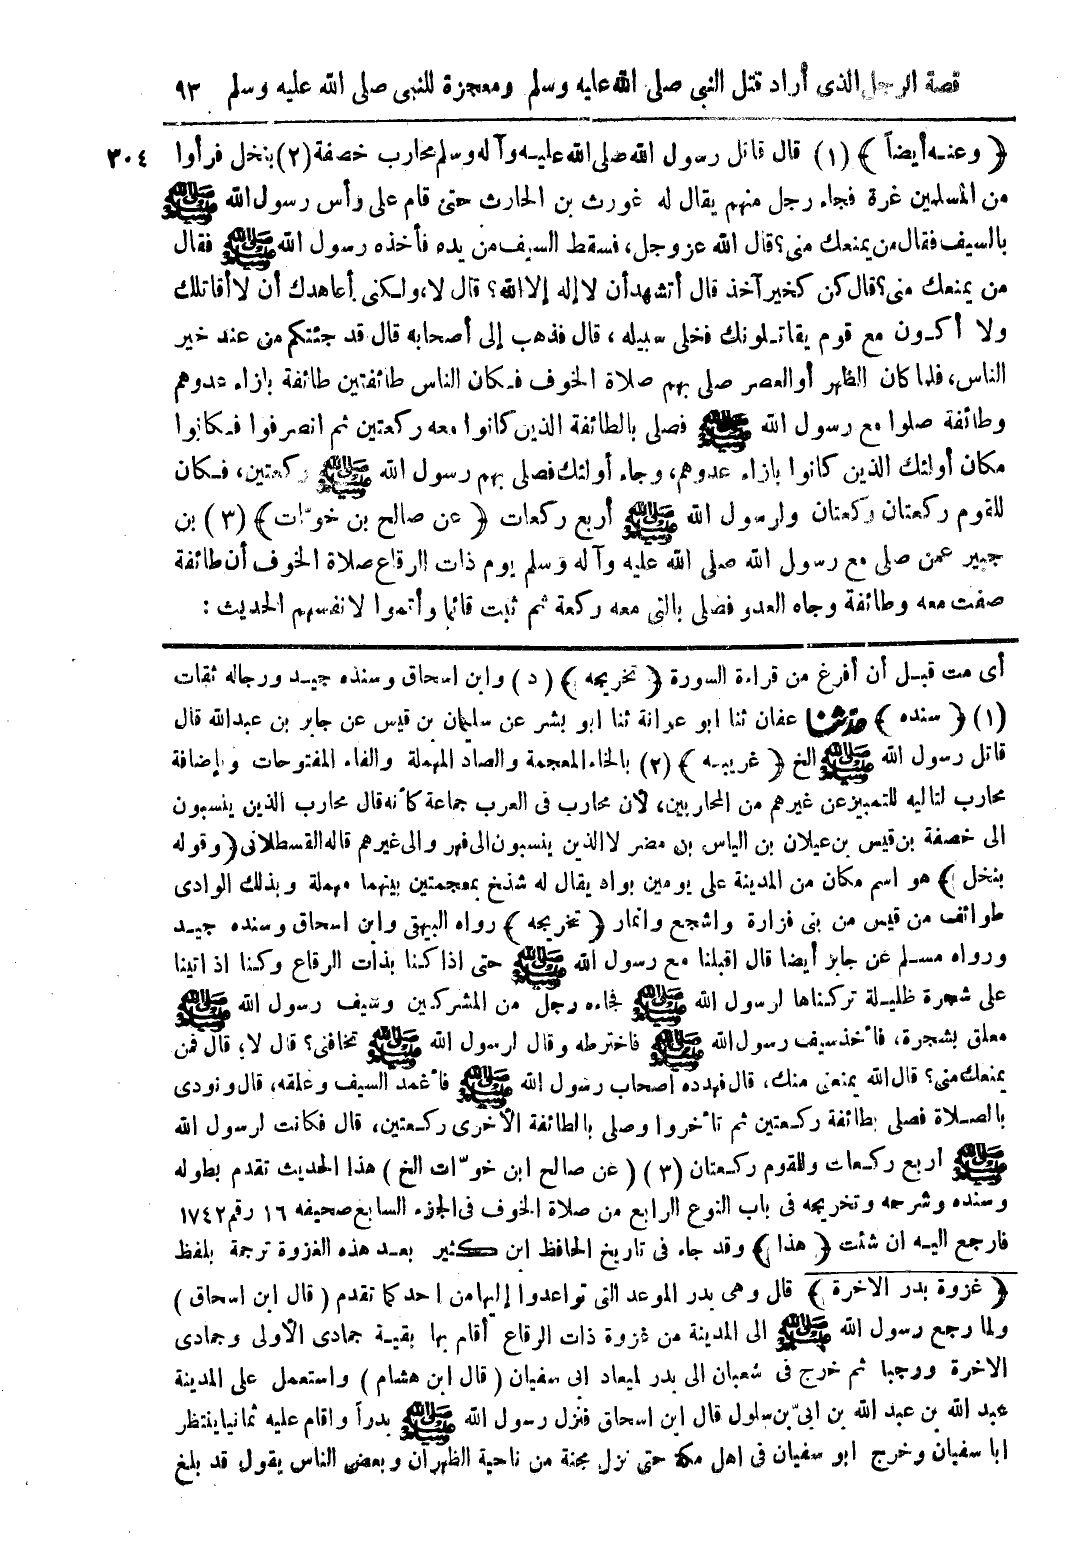 قصة الرجل الذى أراد قتل النبى صلى الله عليه وسلم ومعجزة للنبى صلى الله عليه وسلم ٩٣
﴿ وعنه أيضاً ﴾ (١) قال قاتل رسول الله صلى الله عليه وآله وسلم محارب خصفة (٢) بنخل فرأوا ٣٠٤
من المسلمين غرة فجاء رجل منهم يقال له غورث بن الحارث حتى قام على رأس رسول الله ﷺ
بالسيف فقال من يمنعك منى؟ قال الله عز وجل، فسقط السيف من يده فأخذه رسول الله ﷺ فقال
من يمنعك منى؟ قال كن كخير آخذ قال أتشهد أن لا إله إلا الله؟ قال لا، ولكنى أعاهدك أن لا أقاتلك
ولا أكون مع قوم يقاتلونك فخلى سبيله، قال فذهب إلى أصحابه قال قد جئتكم من عند خير
الناس، فلما كان الظهر أو العصر صلى بهم صلاة الخوف فكان الناس طائفتين طائفة بازاء عدوهم
وطائفة صلوا مع رسول الله ﷺ فصلى بالطائفة الذين كانوا معه ركعتين ثم انصرفوا فكانوا
مكان أولئك الذين كانوا بازاء عدوهم، وجاء أولئك فصلى بهم رسول الله ﷺ ركعتين، فكان
للقوم ركعتان ركعتان ولرسول الله ﷺ أربع ركعات ﴿ عن صالح بن خوّات ﴾ (٣) بن
جبير عمن صلى مع رسول الله صلى الله عليه وآله وسلم يوم ذات الرقاع صلاة الخوف أن طائفة
صفت معه وطائفة وجاه العدو فصلى بالتى معه ركعة ثم ثبت قائما وأتموا لانفسهم الحديث :
أى مت قبل أن أفرغ من قراءة السورة ﴿ تخريجه ﴾ (د) وابن اسحاق وسنده جيد ورجاله ثقات
(١) ﴿ سنده ﴾ حدثنا عفان ثنا ابو عوانة ثنا ابو بشر عن سليمان بن قيس عن جابر بن عبد الله قال
قاتل رسول الله ﷺ الخ ﴿ غريبه ﴾ (٢) بالخاء المعجمة والصاد المهملة والفاء المفتوحات وإضافة
محارب لتاليه للتمييز عن غيرهم من المحاربين، لأن محارب فى العرب جماعة كأنه قال محارب الذين ينسبون
الى خصفة بن قيس بن عيلان بن الياس بن مضر لا الذين ينسبون الى فهر والى غيرهم قاله القسطلانى ﴿ وقوله
بنخل ﴾ هو اسم مكان من المدينة على يومين بواد يقال له شذخ بمعجمتين بينهما مهملة وبذلك الوادى
طوائف من قيس من بنى فزارة واشجع وانمار ﴿ تخريجه ﴾ رواه البيهقى وابن اسحاق وسنده جيد
ورواه مسلم عن جابر أيضا قال اقبلنا مع رسول الله ﷺ حتى اذا كنا بذات الرقاع وكنا اذا تينا
على شجرة ظليلة تركناها لرسول الله ﷺ فجاءه رجل من المشركين وسيف رسول الله ﷺ
معلق بشجرة، فأخذ سيف رسول الله ﷺ فاخترطه وقال لرسول الله ﷺ تخافنى؟ قال لا، قال فمن
يمنعك منى؟ قال الله يمنعنى منك، قال فهدده اصحاب رسول الله ﷺ فأغمد السيف وعلقه، قال ونودى
بالصلاة فصلى بطائفة ركعتين ثم تأخروا وصلى بالطائفة الأخرى ركعتين، قال فكانت لرسول الله
ﷺ أربع ركعات وللقوم ركعتان (٣) (عن صالح ابن خوّات الخ) هذا الحديث تقدم بطوله
وسنده وشرحه وتخريجه فى باب النوع الرابع من صلاة الخوف فى الجزء السابع صحيفه ١٦ رقم ١٧٤٢
فارجع اليه ان شئت ﴿ هذا ﴾ وقد جاء فى تاريخ الحافظ ابن كثير بعد هذه الغزوة ترجمة بلفظ
﴿ غزوة بدر الاخرة ﴾ قال وهى بدر الموعد التى تواعدوا إليها من احد كما تقدم (قال ابن اسحاق)
ولما رجع رسول الله ﷺ الى المدينة من غزوة ذات الرقاع أقام بها بقية جمادى الأولى وجمادى
الاخرة ورجبا ثم خرج فى شعبان الى بدر لميعاد ابى سفيان (قال ابن هشام) واستعمل على المدينة
عبد الله بن عبد الله بن ابىّ بن سلول قال ابن اسحاق فنزل رسول الله ﷺ بدراً واقام عليه ثمانيا ينتظر
ابا سفيان وخرج ابو سفيان فى اهل مكة حتى نزل مجنة من ناحية الظهران وبعض الناس يقول قد بلغ